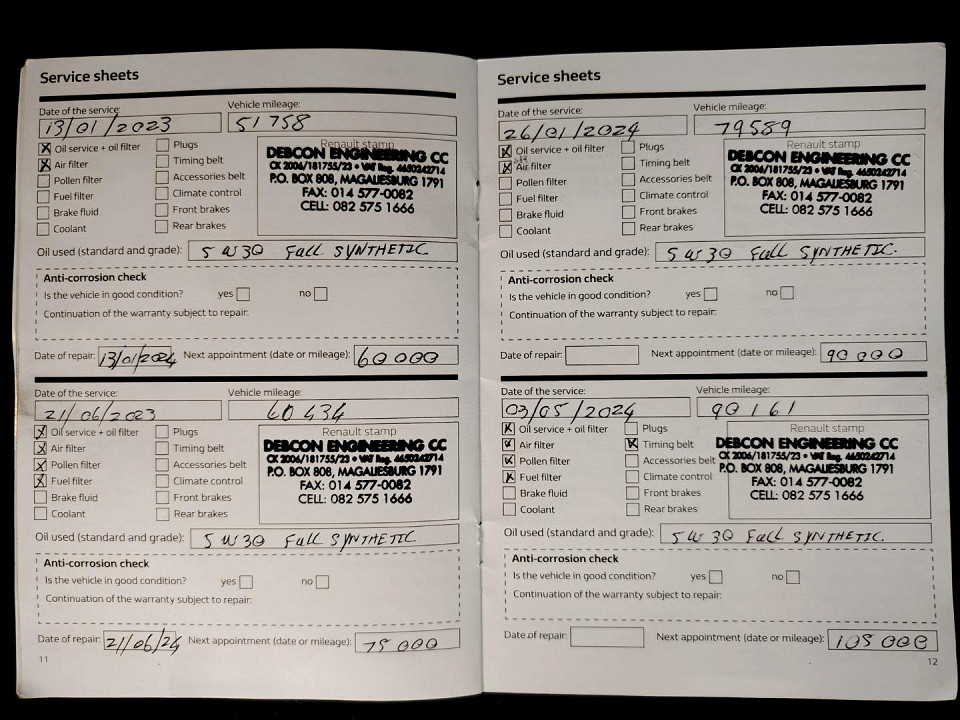 Service sheets
Date of the service: Vehicle mileage:
13/01/2023 51 758
Oil service + oil filter Plugs
Air filter Timing belt
Pollen filter Accessories belt
Fuel filter Climate control
Brake fluid Front brakes
Coolant Rear brakes
Renault stamp
DEBCON ENGINEERING CC
CK 2006/181755/23 • VAT Reg. 4650242714
P.O. BOX 808, MAGALIESBURG 1791
FAX: 014 577-0082
CELL: 082 575 1666
Oil used (standard and grade): 5 W 30 Full SYNTHETIC.
Anti-corrosion check
Is the vehicle in good condition? yes no
Continuation of the warranty subject to repair:
Date of repair: 13/01/2024 Next appointment (date or mileage): 60 000
Date of the service: Vehicle mileage:
21/06/2023 60 434
Oil service + oil filter Plugs
Air filter Timing belt
Pollen filter Accessories belt
Fuel filter Climate control
Brake fluid Front brakes
Coolant Rear brakes
Renault stamp
DEBCON ENGINEERING CC
CK 2006/181755/23 • VAT Reg. 4650242714
P.O. BOX 808, MAGALIESBURG 1791
FAX: 014 577-0082
CELL: 082 575 1666
Oil used (standard and grade): 5 W 30 Full SYNTHETIC
Anti-corrosion check
Is the vehicle in good condition? yes no
Continuation of the warranty subject to repair:
Date of repair: 21/06/24 Next appointment (date or mileage): 75 000
11
Service sheets
Date of the service: Vehicle mileage:
26/01/2024 79589
Oil service + oil filter Plugs
Air filter Timing belt
Pollen filter Accessories belt
Fuel filter Climate control
Brake fluid Front brakes
Coolant Rear brakes
Renault stamp
DEBCON ENGINEERING CC
CK 2006/181755/23 • VAT Reg. 4650242714
P.O. BOX 808, MAGALIESBURG 1791
FAX: 014 577-0082
CELL: 082 575 1666
Oil used (standard and grade): 5 W 30 Full SYNTHETIC.
Anti-corrosion check
Is the vehicle in good condition? yes no
Continuation of the warranty subject to repair:
Date of repair: Next appointment (date or mileage): 90 000
Date of the service: Vehicle mileage:
03/05/2024 90 161
Oil service + oil filter Plugs
Air filter Timing belt
Pollen filter Accessories belt
Fuel filter Climate control
Brake fluid Front brakes
Coolant Rear brakes
Renault stamp
DEBCON ENGINEERING CC
CK 2006/181755/23 • VAT Reg. 4650242714
P.O. BOX 808, MAGALIESBURG 1791
FAX: 014 577-0082
CELL: 082 575 1666
Oil used (standard and grade): 5 W 30 Full SYNTHETIC.
Anti-corrosion check
Is the vehicle in good condition? yes no
Continuation of the warranty subject to repair:
Date of repair: Next appointment (date or mileage): 105 000
12